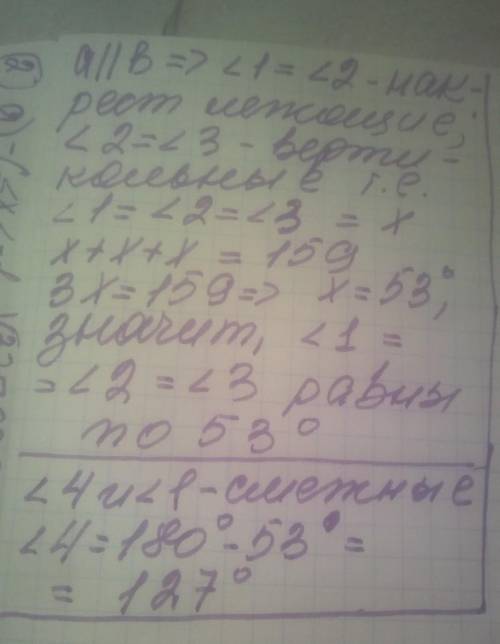 a||b => <1 = <2 - нак-
рест лежащие;
<2 = <3 - верти-
кальные т.е.
<1 = <2 = <3 = x
x+x+x = 159
3x=159 => x=53°,
значит, <1 =
= <2 = <3 равны
по 53°
<4 и <1 - смежные
<4 = 180° - 53° =
= 127°